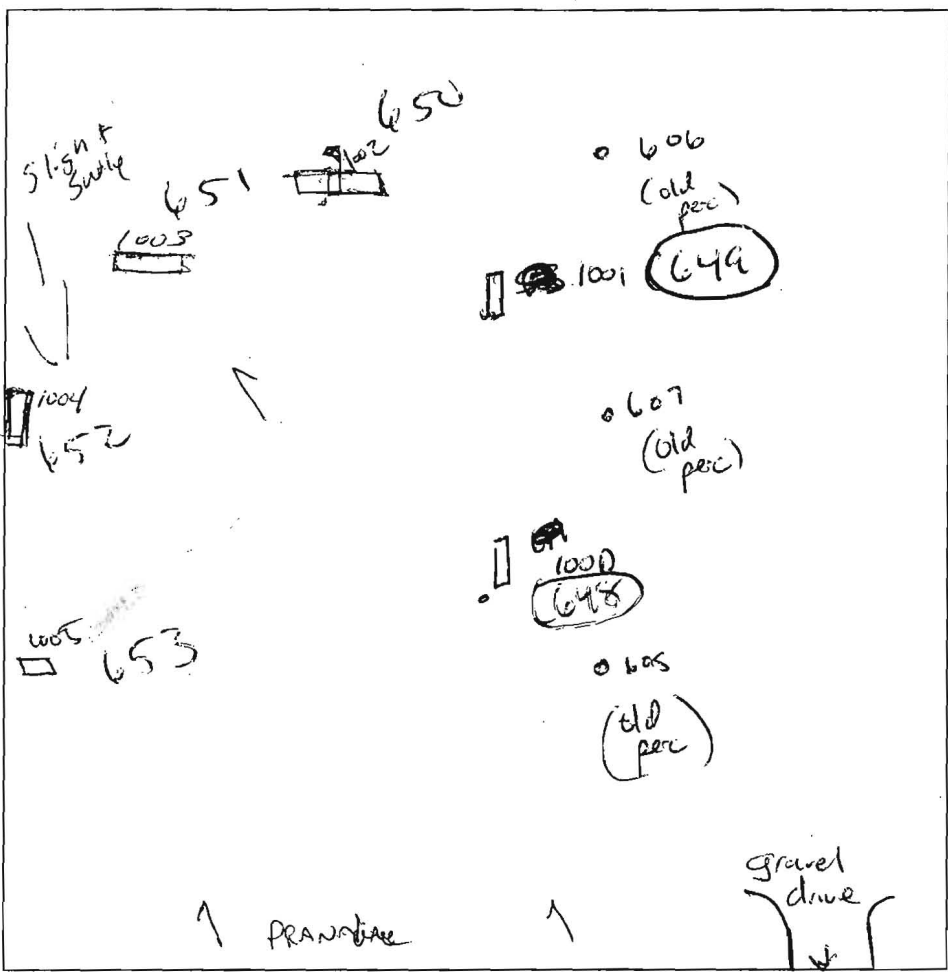 650
1002
slight
swale
651
1003
606
(old
perc)
1001
649
1004
652
607
(old
perc)
1000
648
1005
653
605
(old
perc)
gravel
drive